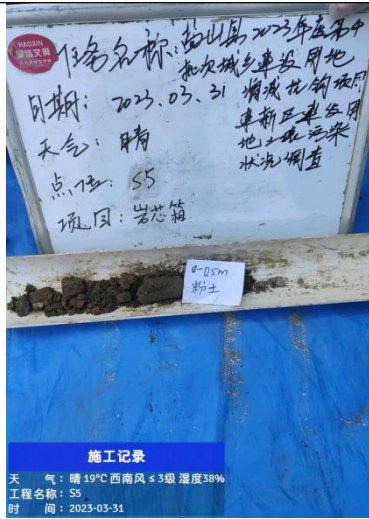 HAOXIN
任务名称:盐山县2023年度第
批次城乡建设用地
增减挂钩项目
建新区建设用
地土壤污染
状况调查
日期:2023.03.31
天气:晴
点位:S5
项目:岩芯箱
0-0.5m
粉土
施工记录
天 气:晴 19℃ 西南风 ≤ 3级 湿度38%
工程名称:S5
时 间:2023-03-31